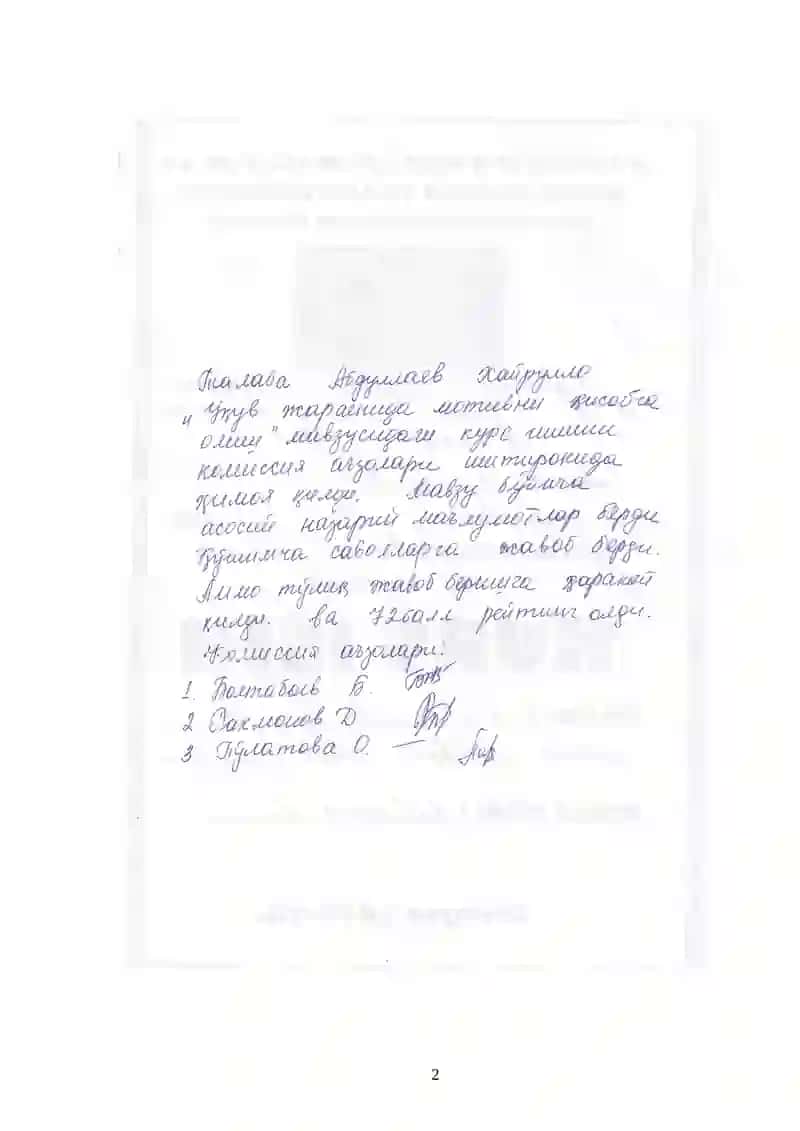 Талаба Абдуллаев Хайрулло
„Ўқув жараёнида мотивни ҳисобга
олиш" мавзусидаги курс ишини
комиссия аъзолари иштирокида
ҳимоя қилди. Мавзу бўйича
асосий назарий маълумотлар берди
Қўшимча саволларга жавоб берди.
Аммо тўлиқ жавоб беришга ҳаракат
қилди. ва 72 балл рейтинг олди.
Комиссия аъзолари:
1. Болтабоев Б.
2 Рахмонов Д
3 Пўлатова О. —
2